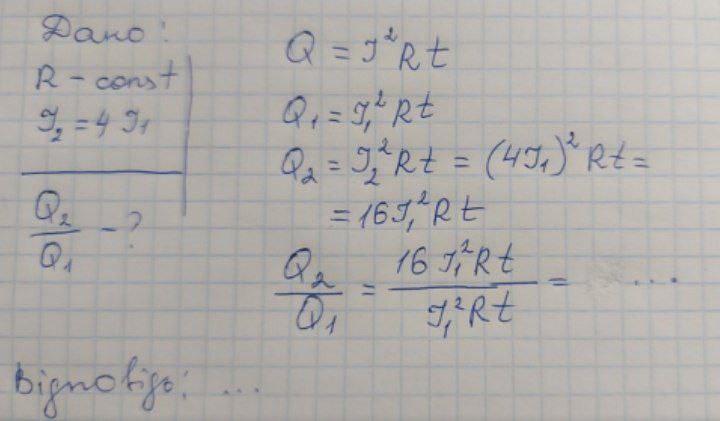 Дано:
R - const
I₂ = 4 I₁
Q₂/Q₁ - ?
Q = I²Rt
Q₁ = I₁²Rt
Q₂ = I₂²Rt = (4I₁)²Rt =
= 16I₁²Rt
Q₂/Q₁ = 16 I₁²Rt / I₁²Rt = ...
Відповідь: ...